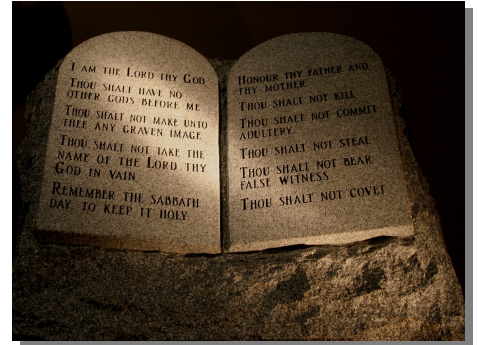 I am the Lord thy God
Thou shalt have no
other gods before me
Thou shalt not make unto
thee any graven image
Thou shalt not take the
name of the Lord thy
God in vain
Remember the sabbath
day, to keep it holy
Honour thy father and
thy mother
Thou shalt not kill
Thou shalt not commit
adultery
Thou shalt not steal
Thou shalt not bear
false witness
Thou shalt not covet